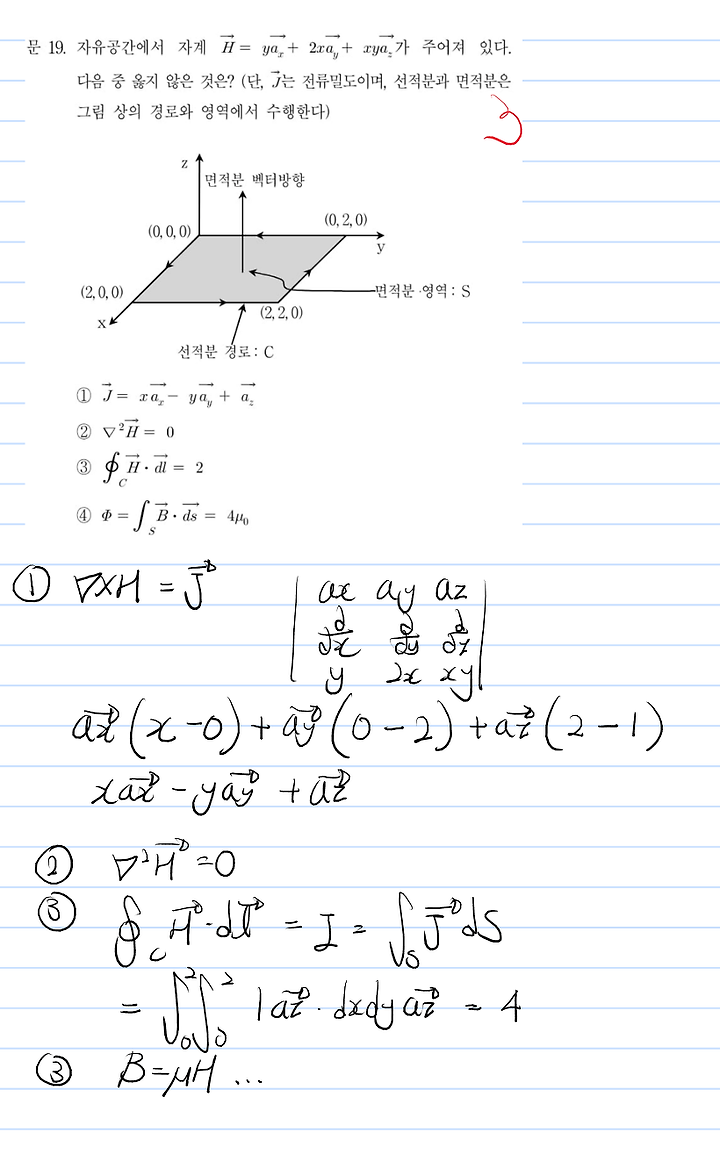 문 19. 자유공간에서 자계 H⃗ = ya⃗ₓ + 2xa⃗ᵧ + xya⃗_z가 주어져 있다.
다음 중 옳지 않은 것은? (단, J⃗는 전류밀도이며, 선적분과 면적분은
그림 상의 경로와 영역에서 수행한다)
3
z
면적분 벡터방향
(0, 0, 0)
(0, 2, 0)
y
(2, 0, 0)
면적분 영역 : S
(2, 2, 0)
x
선적분 경로 : C
① J⃗ = xa⃗ₓ − ya⃗ᵧ + a⃗_z
② ∇²H⃗ = 0
③ ∮_C H⃗ · dl⃗ = 2
④ Φ = ∫_S B⃗ · ds⃗ = 4μ₀
① ∇×H = J⃗
| ax ay az |
| d/dx d/dy d/dz |
| y 2x xy |
ax⃗(x−0) + ay⃗(0−2) + az⃗(2−1)
xax⃗ − yay⃗ + az⃗
② ∇²H⃗ = 0
③ ∮_C H⃗·dl⃗ = I = ∫_S J⃗ dS
= ∫₀²∫₀² 1az⃗ · dxdy az⃗ = 4
③ B = μH ...